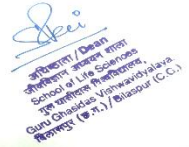 अधिष्ठाता / Dean
जीवविज्ञान अध्ययन शाला
School of Life Sciences
गुरू घासीदास विश्वविद्यालय,
Guru Ghasidas Vishwavidyalaya
बिलासपुर (छ.ग.) / Bilaspur (C.C.)